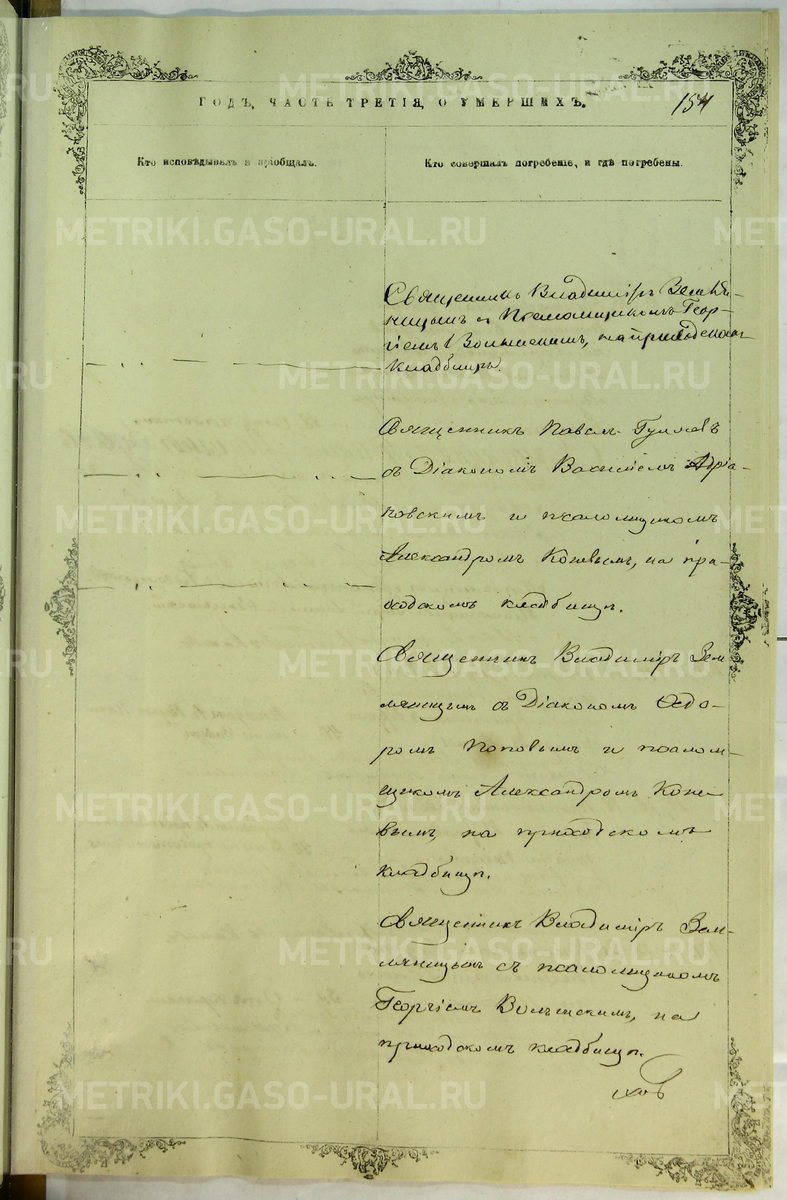 ГОДЪ, ЧАСТЬ ТРЕТІЯ, О УМЕРШИХЪ.
154
Кто исповѣдывалъ и пріобщалъ.
Кто совершалъ погребеніе, и гдѣ погребены.
METRIKI.GASO-URAL.RU
Священникъ Владиміръ Земля-
ницынъ съ Псаломщикомъ Геор-
гіемъ Волынскимъ, на приходском
кладбищѣ.
Священникъ Павелъ Гуляевъ
съ Діакономъ Василіемъ Адріа-
новскимъ и псаломщикомъ
Александромъ Коневымъ, на при-
ходскомъ кладбищѣ.
Священникъ Владиміръ Зем
ляницынъ съ Діакономъ Ѳедо-
ромъ Поповымъ и псалом-
щикомъ Александромъ Коне-
вымъ, на приходскомъ
кладбищѣ.
Священникъ Владиміръ Зем-
ляницынъ съ псаломщикомъ
Георгіемъ Волынскимъ, на
приходскомъ кладбищѣ.
ховъ